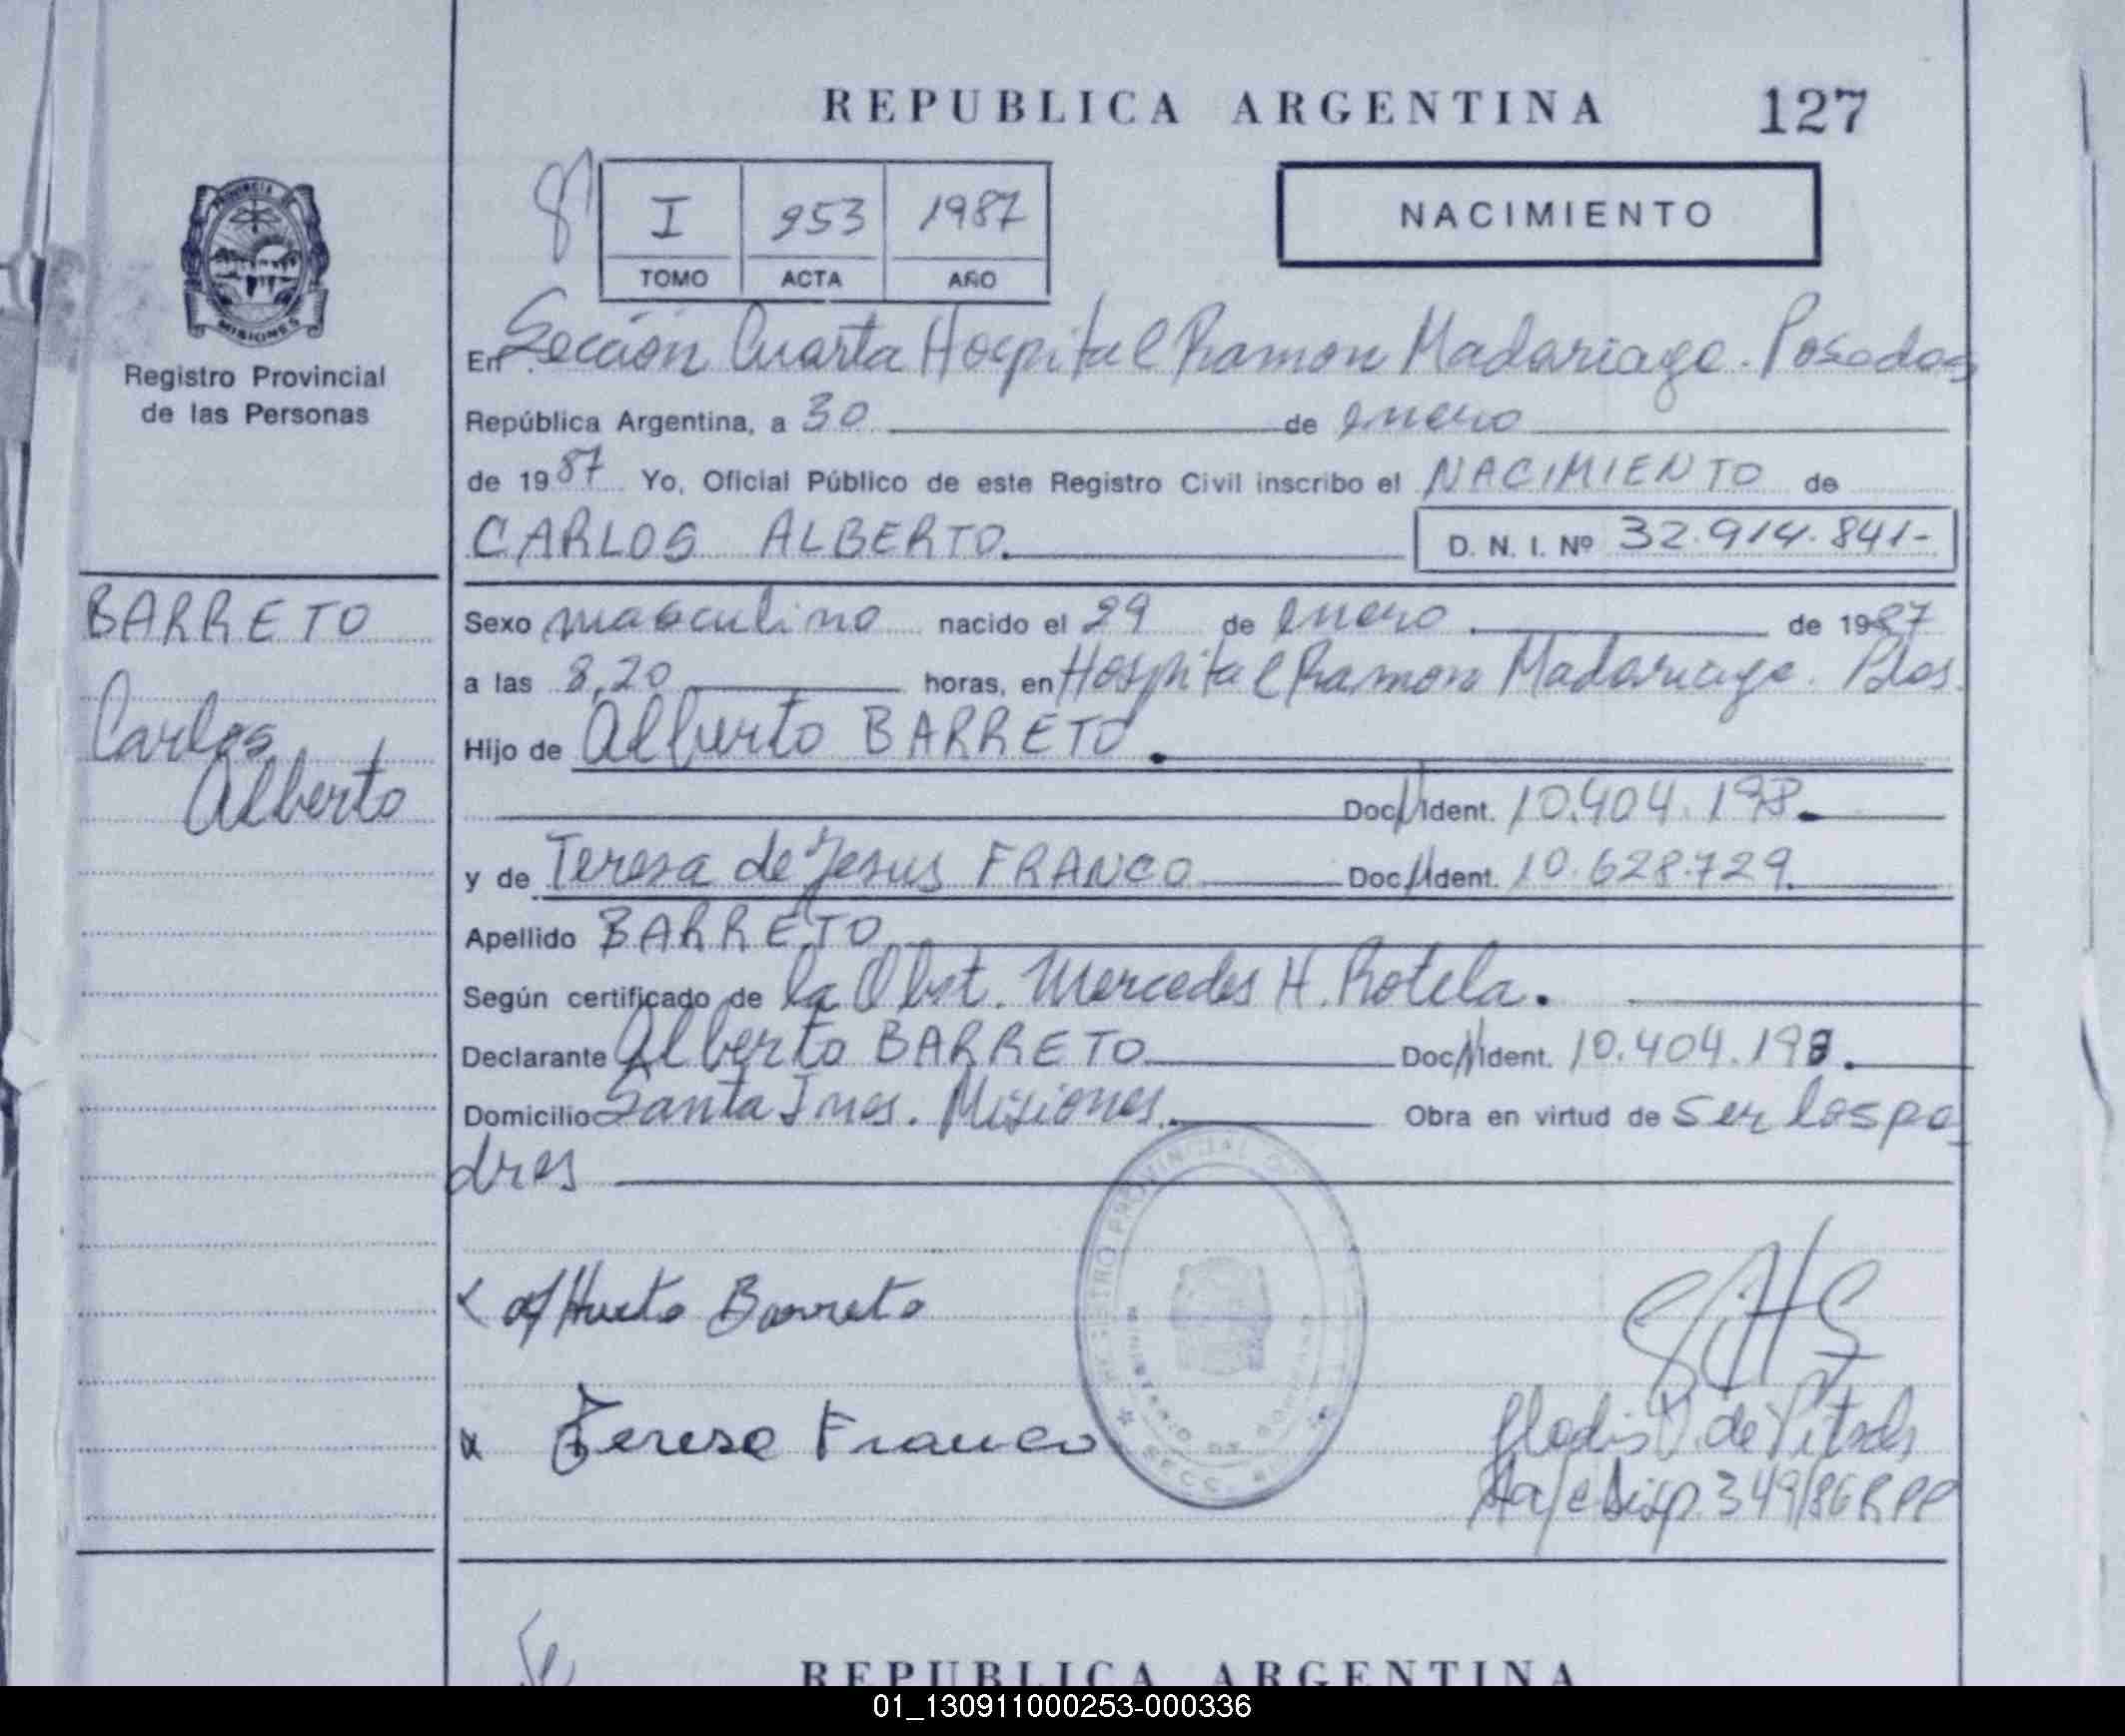 REPUBLICA ARGENTINA 127
I 953 1987
TOMO ACTA AÑO
NACIMIENTO
PROVINCIA
MISIONES
Registro Provincial
de las Personas
BARRETO
Carlos
Alberto
En Sección Cuarta Hospital Ramon Madariaga. Posadas
República Argentina, a 30 de enero
de 1987 Yo, Oficial Público de este Registro Civil inscribo el NACIMIENTO de
CARLOS ALBERTO. D. N. I. Nº 32.914.841-
Sexo masculino nacido el 29 de enero de 1987
a las 8,20 horas, en Hospital Ramon Madariaga. Pdas.
Hijo de Alberto BARRETO.
Doc. Ident. 10.404.198.
y de Teresa de Jesus FRANCO Doc. Ident. 10.628.729.
Apellido BARRETO
Según certificado de la Obst. Mercedes H. Rotela.
Declarante Alberto BARRETO Doc. Ident. 10.404.198.
Domicilio Santa Ines. Misiones. Obra en virtud de ser los pa
dres
REGISTRO PROVINCIAL
MINISTERIO DE GOBIERNO
Barreto
Teresa Franco
de
Disp. 349/86 RPP
REPUBLICA ARGENTINA
01_130911000253-000336